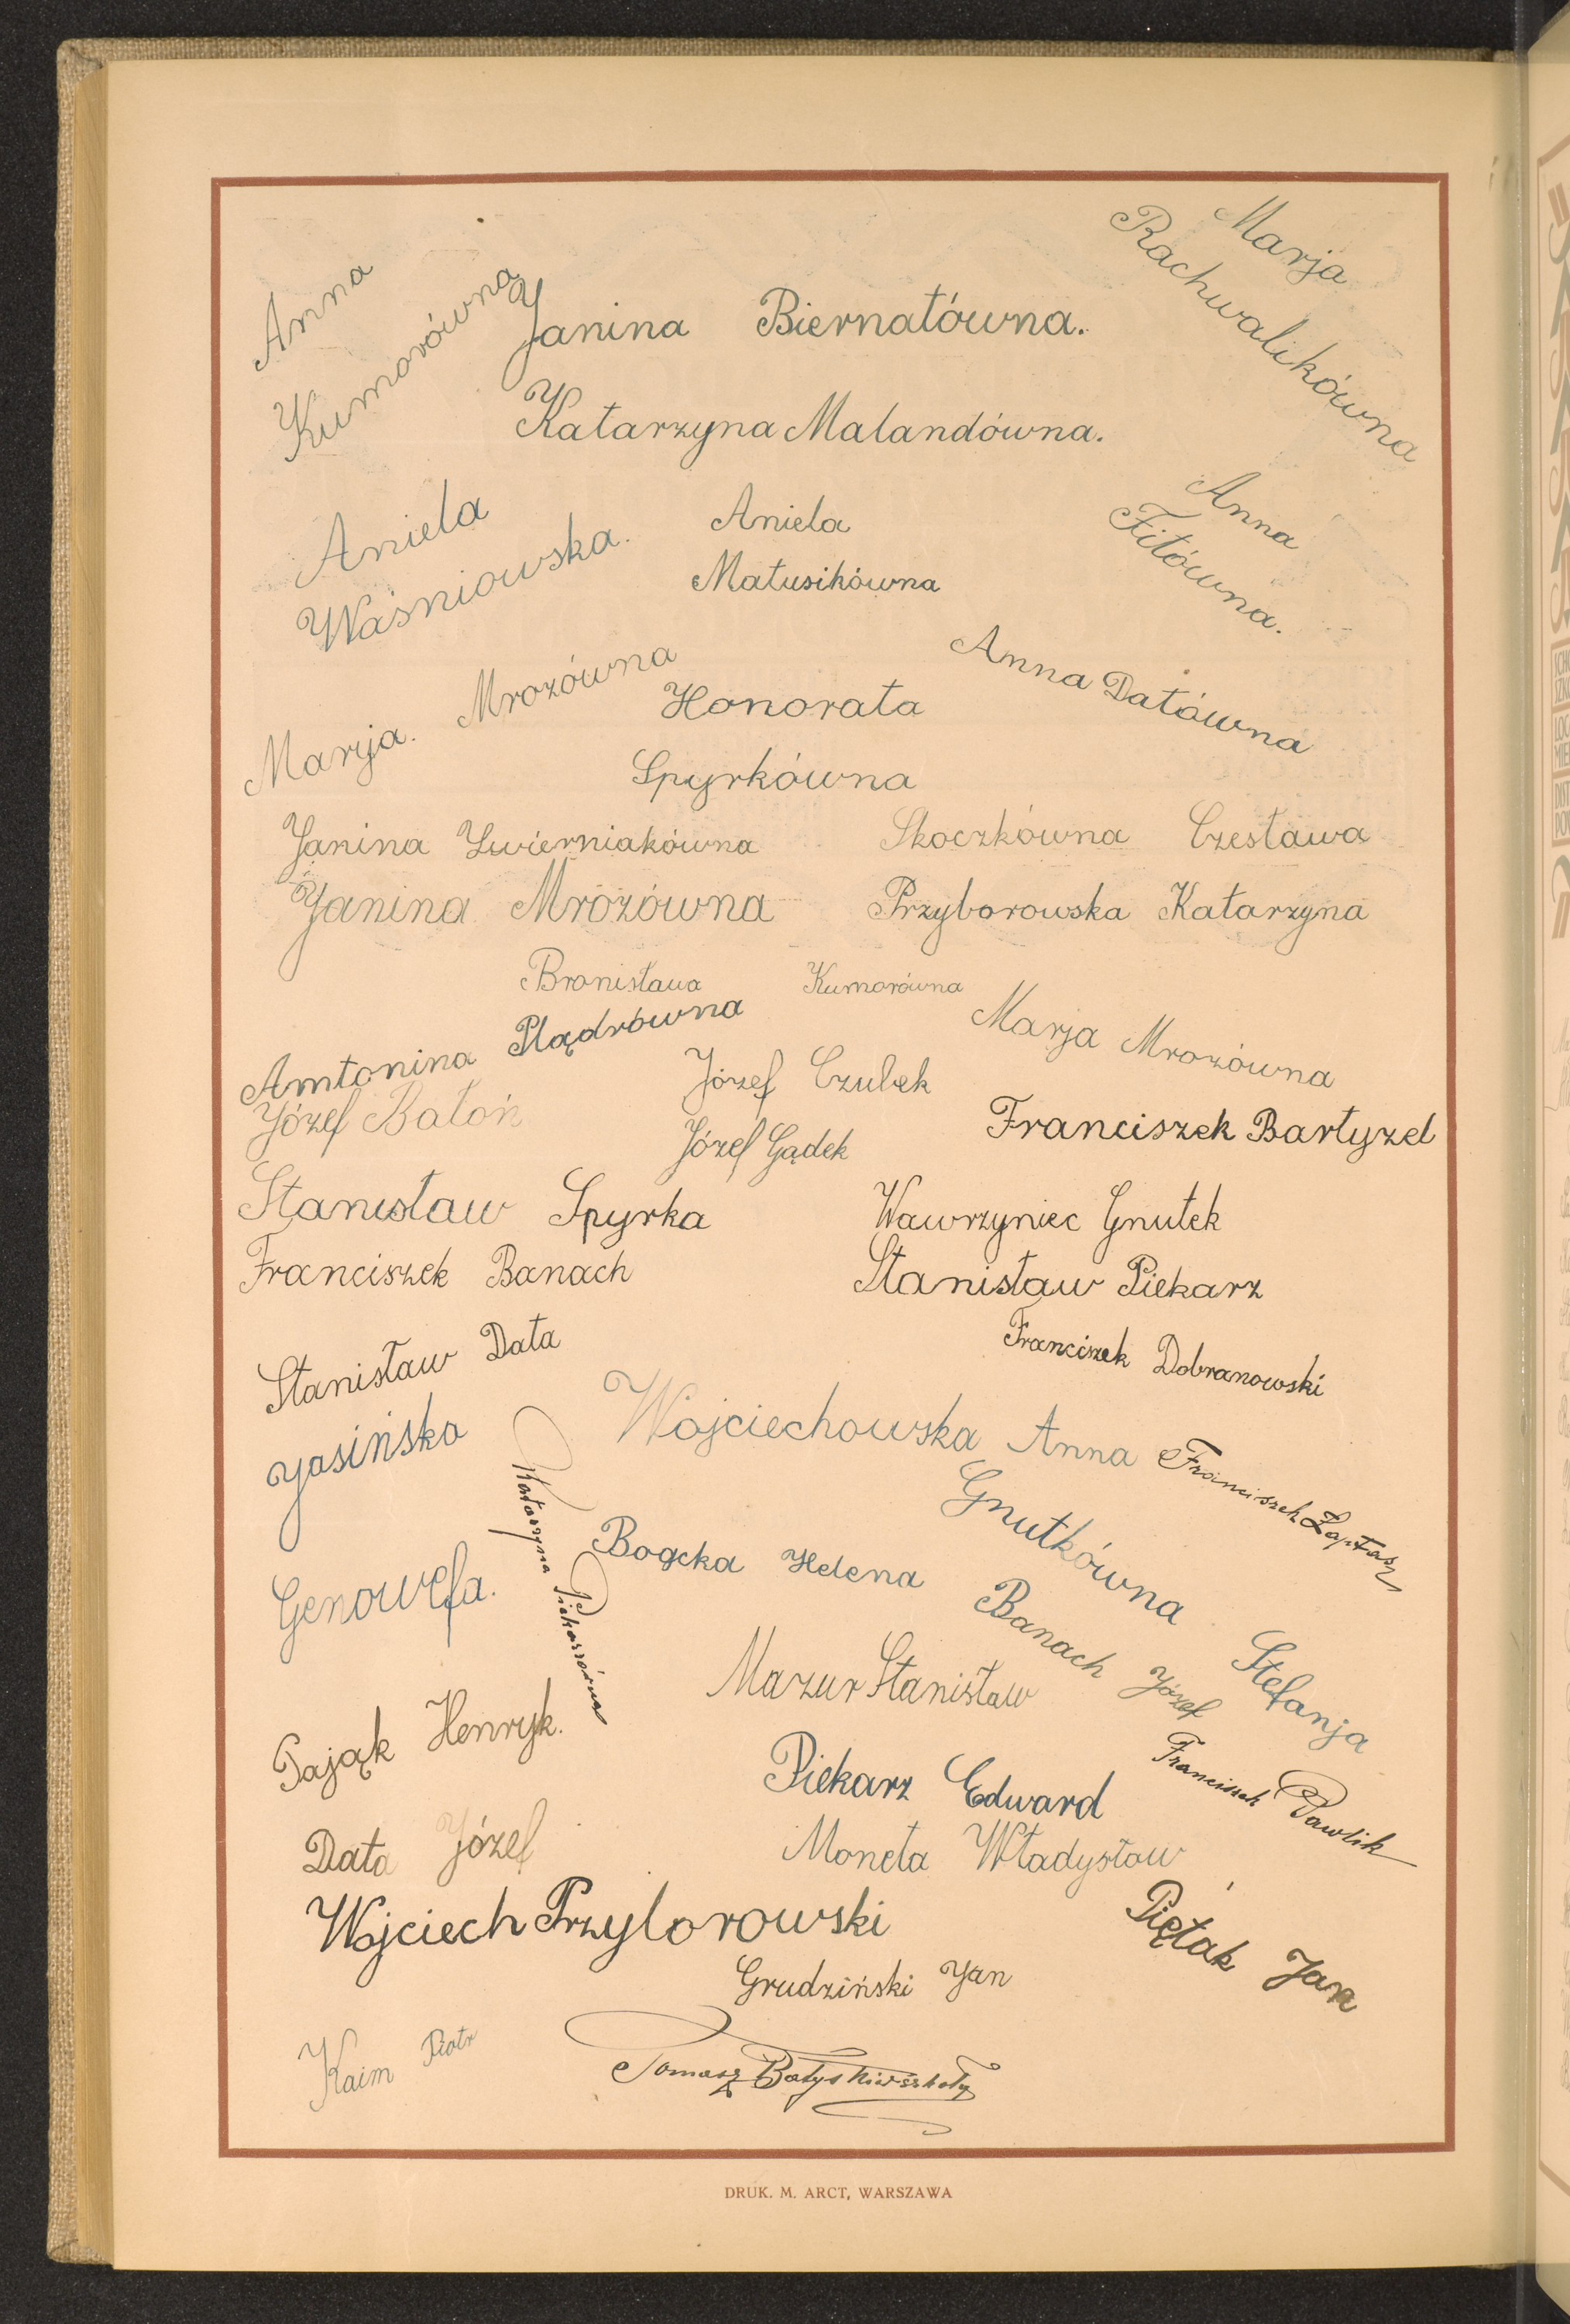 Anna
Kumorówna
Marja
Rachwalikówna
Janina Biernatówna.
Katarzyna Malandówna.
Aniela
Waśniowska.
Aniela
Matusikówna
Anna
Fitówna.
Marja. Mrozówna
Honorata
Spyrkówna
Anna Datówna
Janina Żwierniakówna
Skoczkówna Czesława
Janina Mrozówna
Przyborowska Katarzyna
Bronisława Kumorówna
Antonina Plądrówna
Marja Mrozówna
Józef Czubek
Józef Batoń
Józef Gądek
Franciszek Bartyzel
Stanisław Spyrka
Wawrzyniec Gnutek
Franciszek Banach
Stanisław Piekarz
Stanisław Data
Franciszek Dobranowski
Jasińska
Genowefa.
Wojciechowska Anna
Franciszek Łaptasz
Katarzyna Piekarzówna
Bogcka Helena
Gnutkówna Stefanja
Banach Józef
Mazur Stanisław
Pająk Henryk.
Piekarz Edward
Franciszek Pawlik
Data Józef
Moneta Władysław
Wojciech Przyborowski
Piętak Jan
Grudziński Jan
Kaim Piotr
Tomasz Batys
DRUK. M. ARCT, WARSZAWA